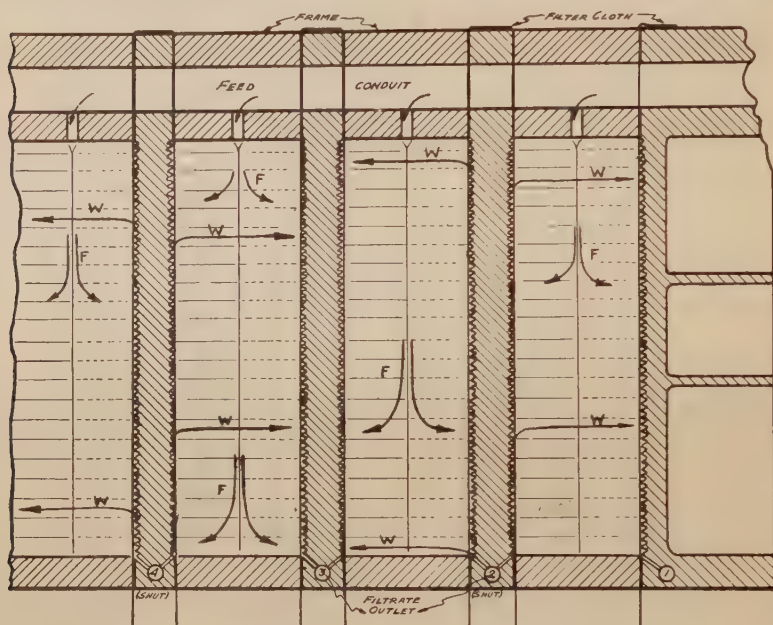 FRAME
FILTER CLOTH
FEED CONDUIT
W
F
F
W
W
F
W
W
F
W
W
F
W
W
4
3
2
1
(SHUT)
(SHUT)
FILTRATE
OUTLET